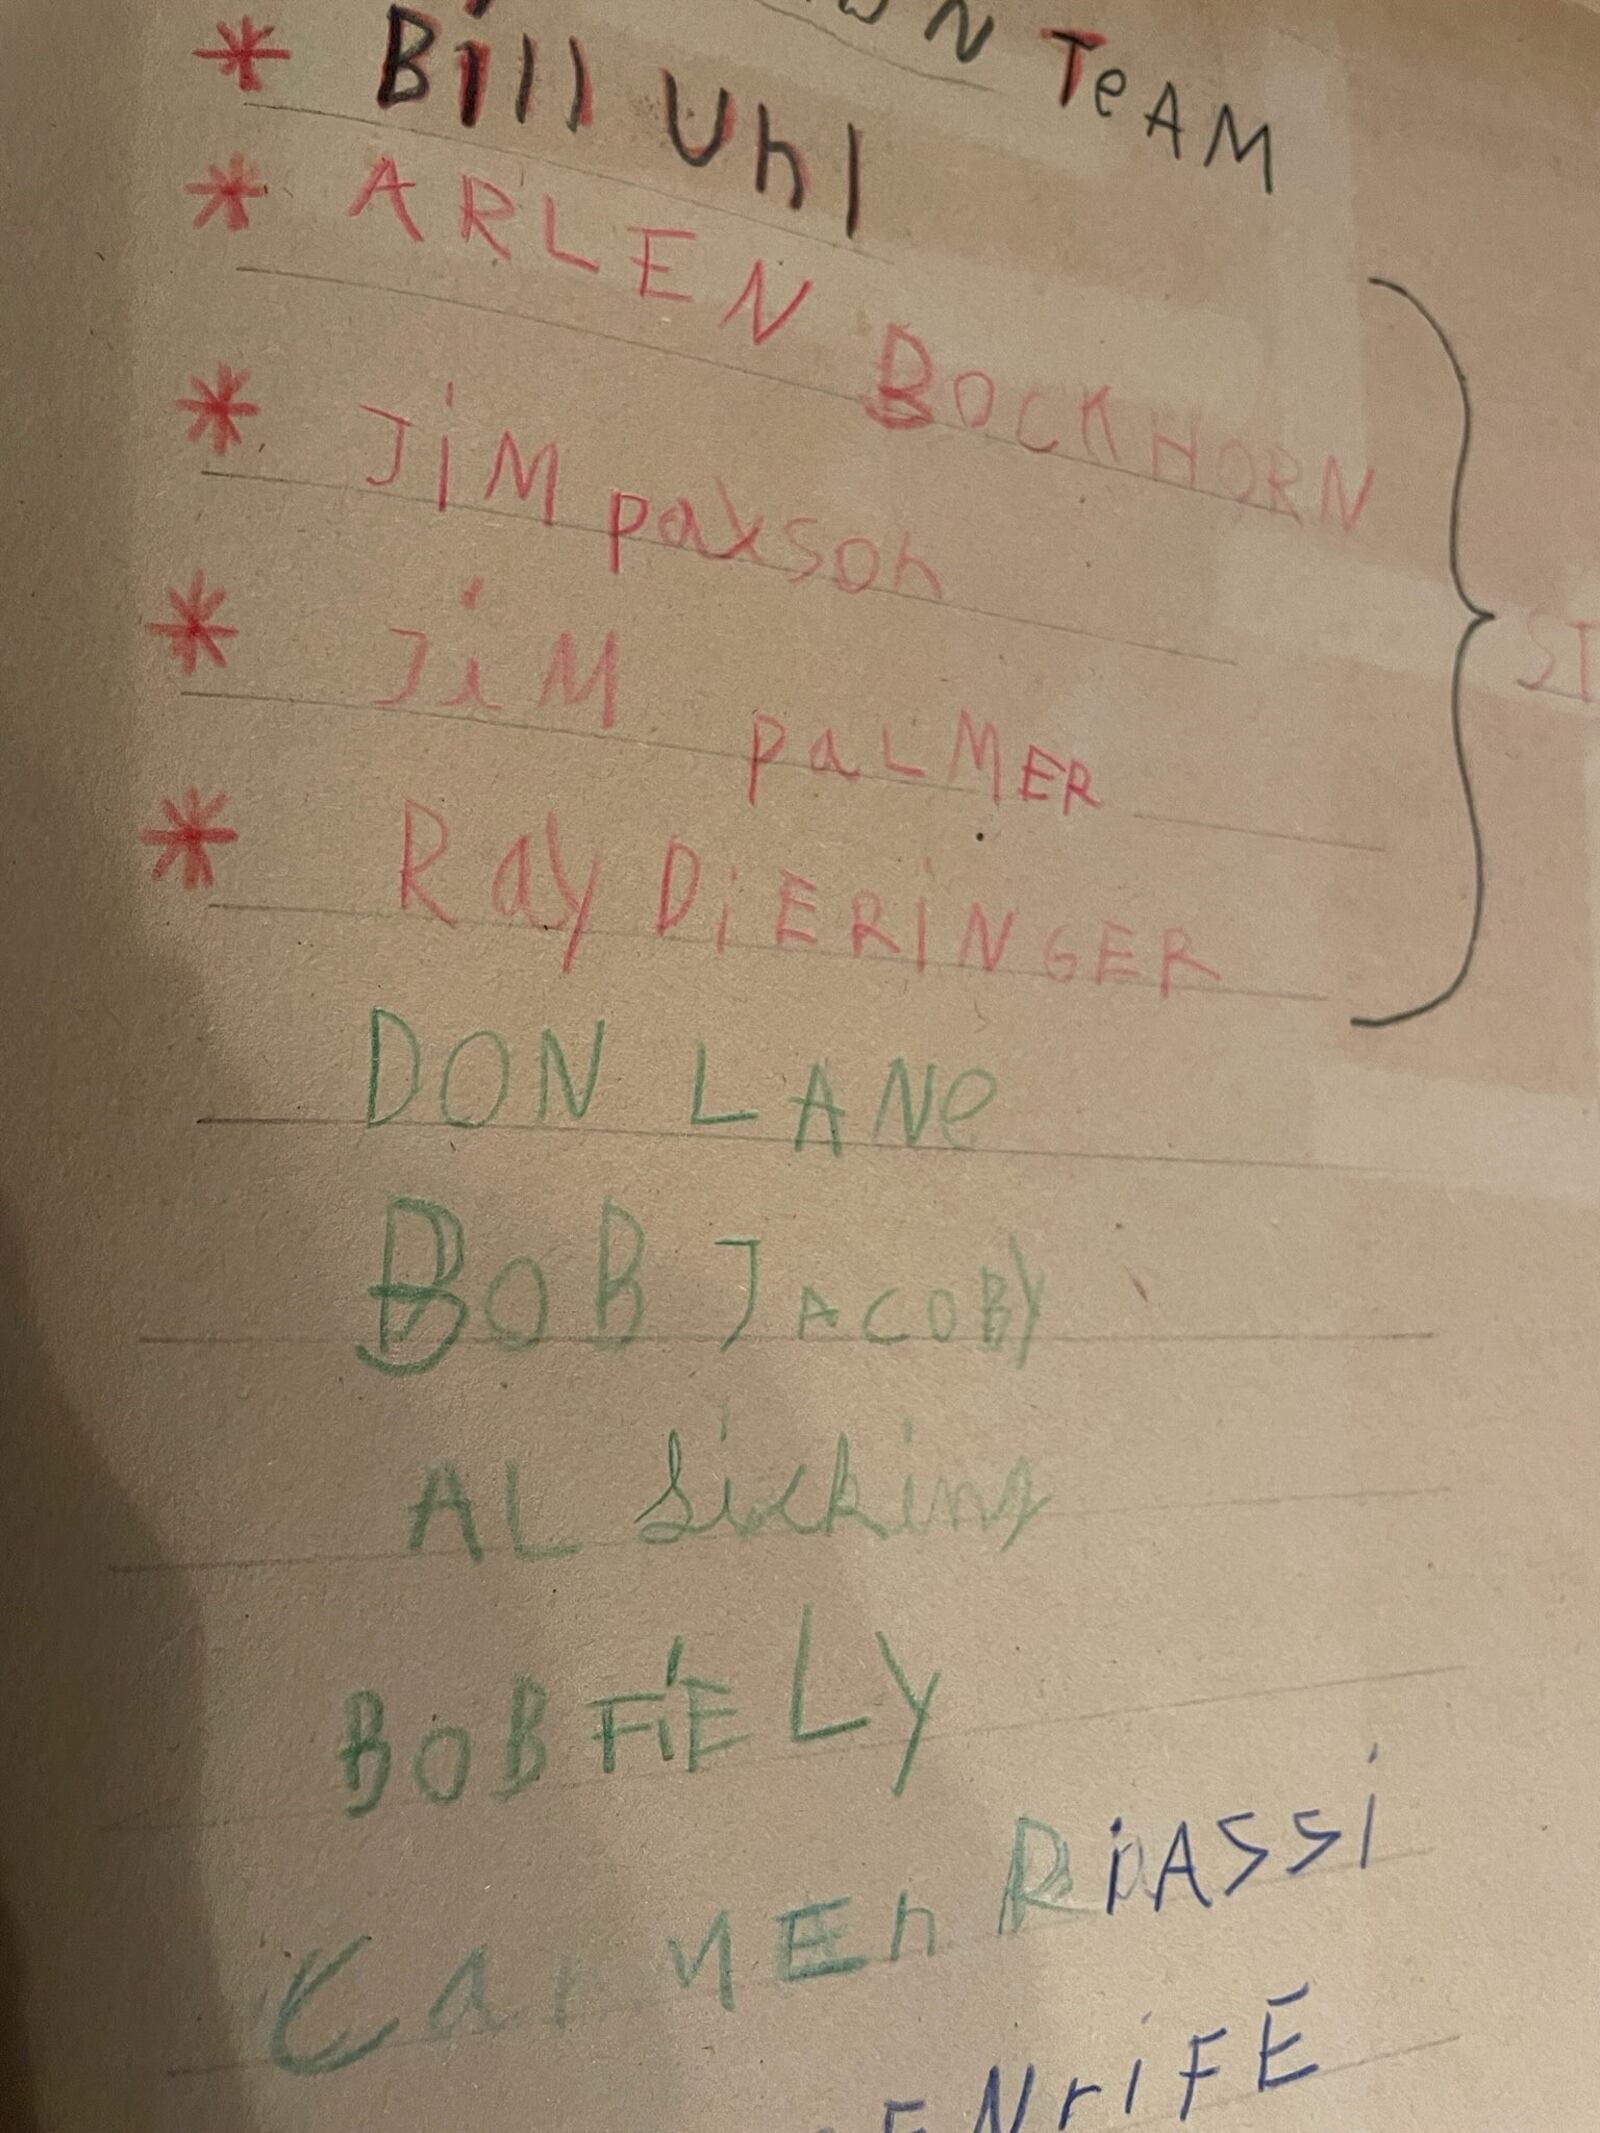 TeAM
* Bill Uhl
* ARLEN BOCKHORN
* JiM paxson
* JiM paLMER
* Ray DiERiNGER
DON LANe
BOB JACOBY
AL Sicking
BOB FiELy
CarMEn RiASSi